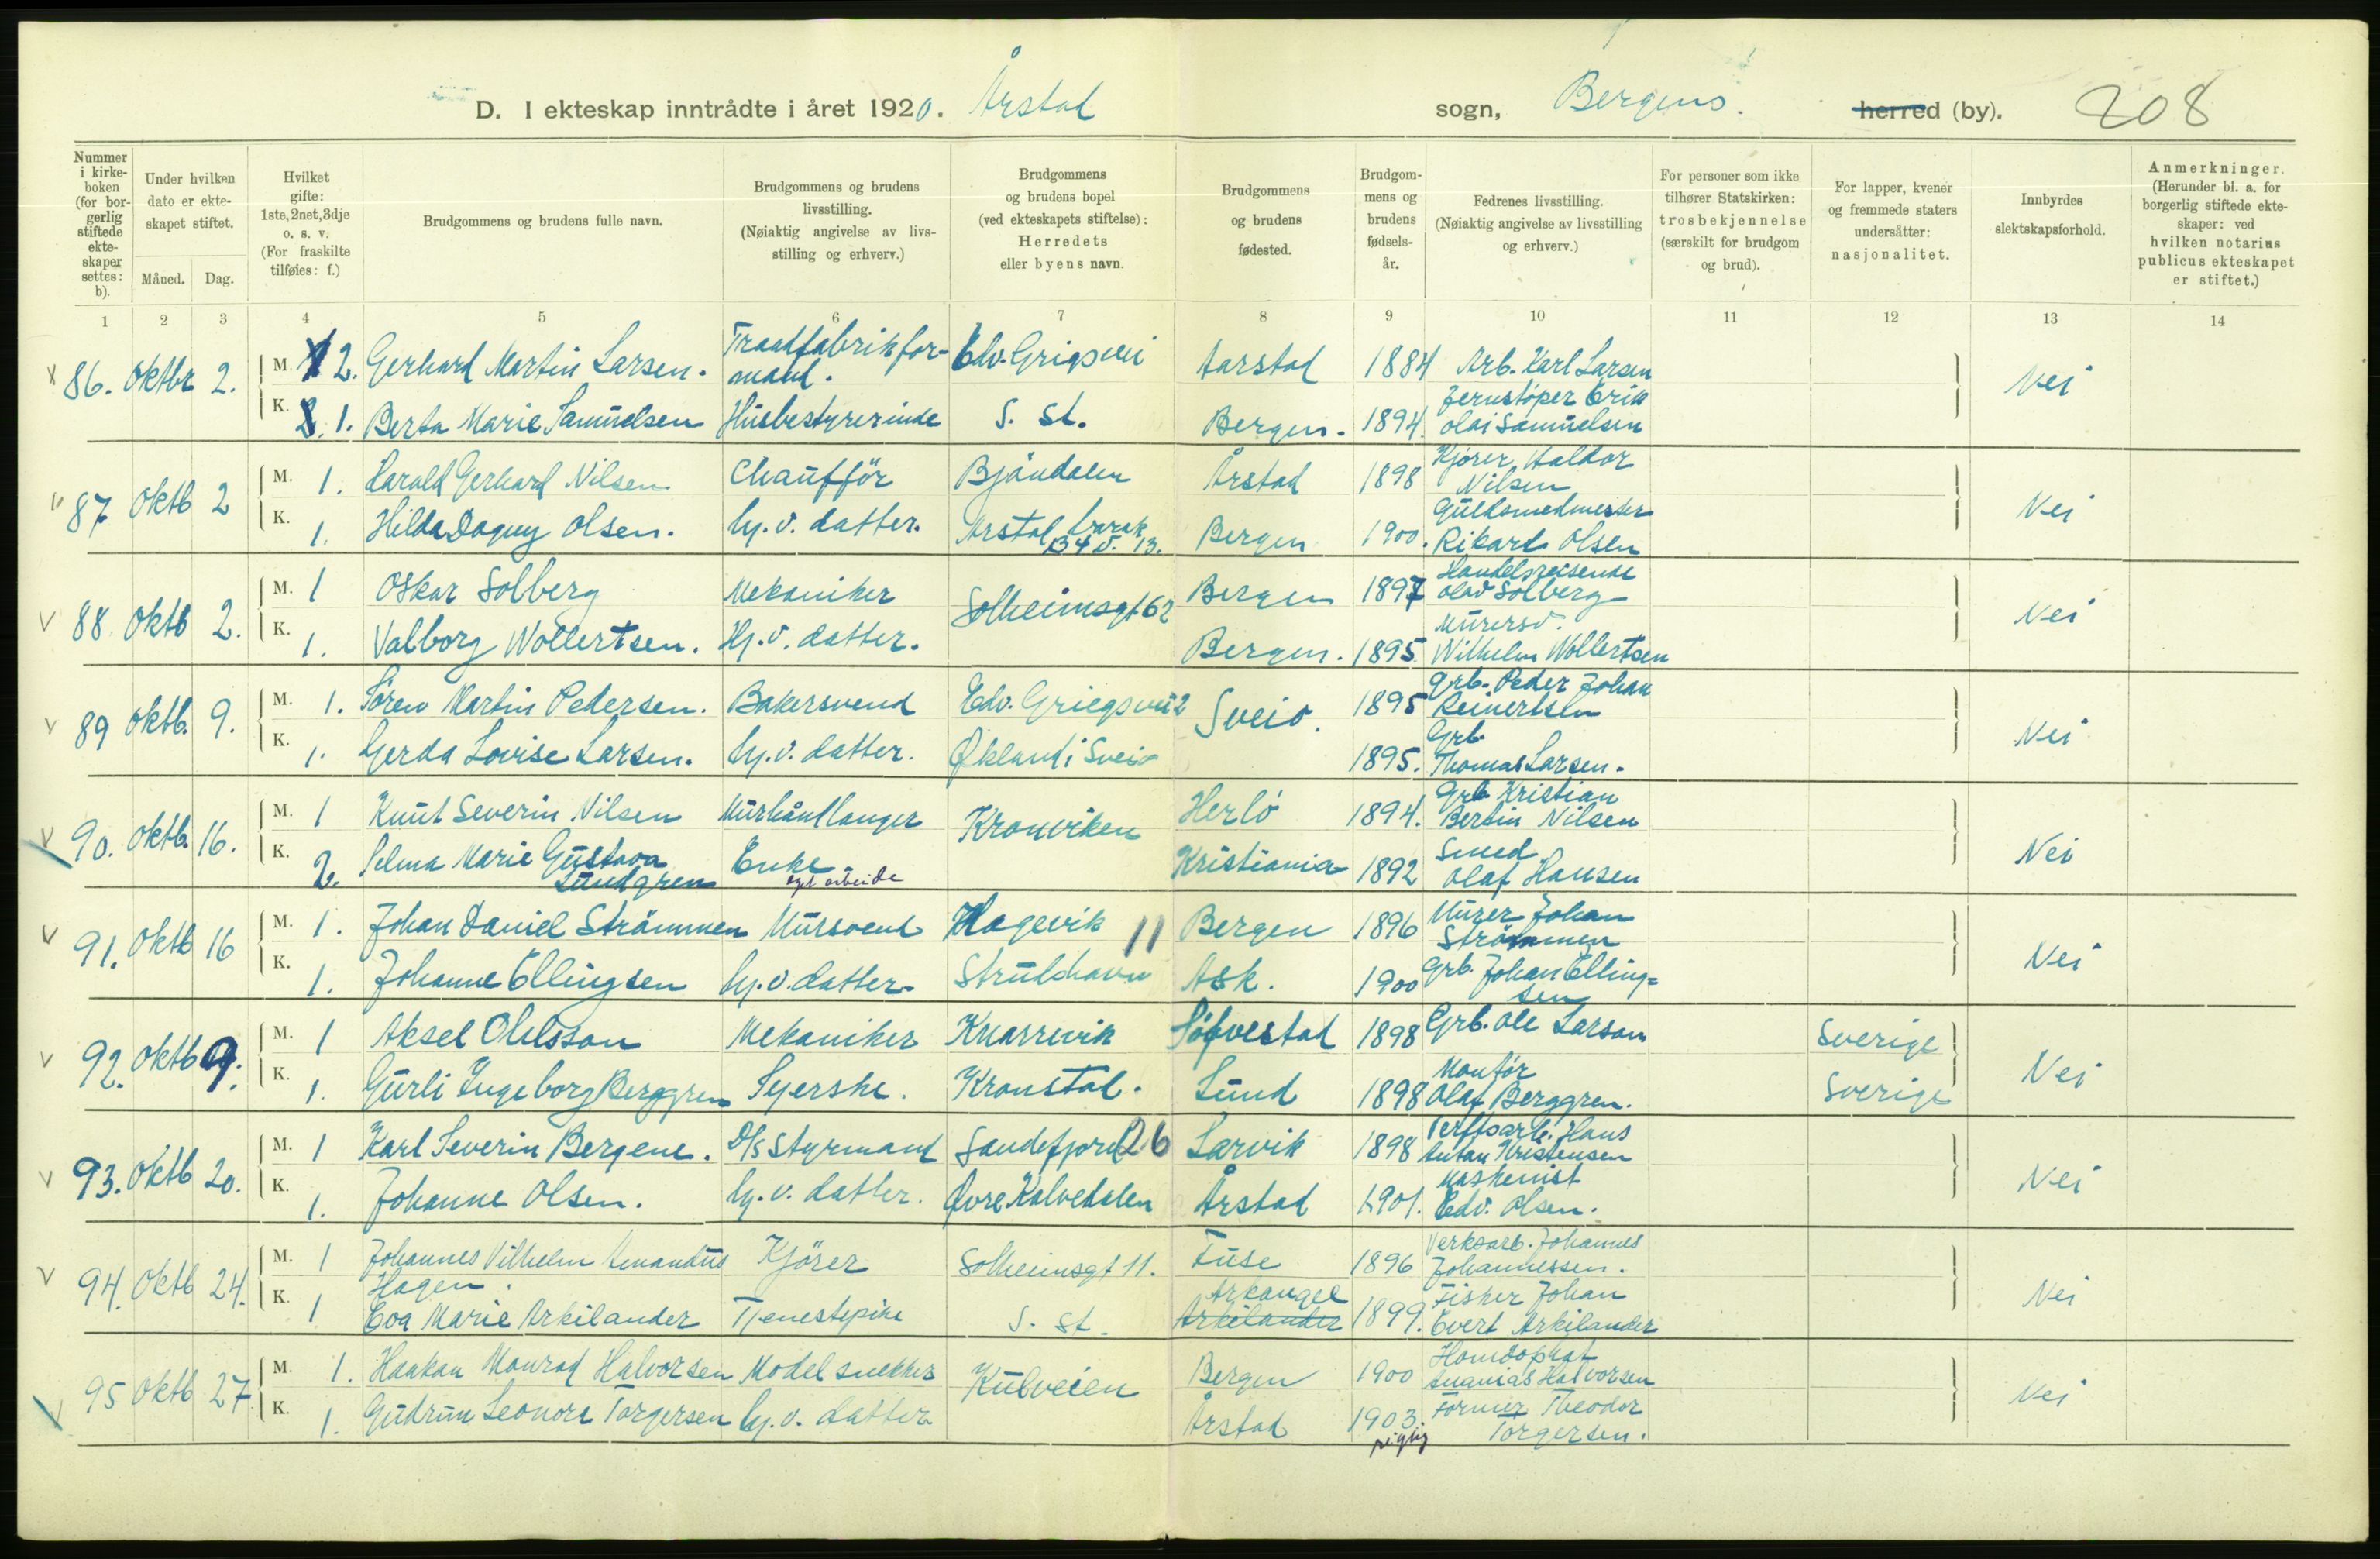 D. I ekteskap inntrådte i året 1920. Årstad sogn, Bergens. herred (by). 208
Nummer i kirke-boken (for bor-gerlig stiftede ekte-skaper settes: b).
Under hvilken dato er ekte-skapet stiftet.
Måned. Dag.
Hvilket gifte: 1ste, 2net, 3dje o. s. v. (For fraskilte tilføies: f.)
Brudgommens og brudens fulle navn.
Brudgommens og brudens livsstilling. (Nøiaktig angivelse av livs-stilling og erhverv.)
Brudgommens og brudens bopel (ved ekteskapets stiftelse): Herredets eller byens navn.
Brudgommens og brudens fødested.
Brudgom-mens og brudens fødsels-år.
Fedrenes livsstilling. (Nøiaktig angivelse av livsstilling og erhverv.)
For personer som ikke tilhører Statskirken: trosbekjennelse (særskilt for brudgom og brud).
For lapper, kvener og fremmede staters undersåtter: nasjonalitet.
Innbyrdes slektskapsforhold.
Anmerkninger. (Herunder bl. a. for borgerlig stiftede ekte-skaper: ved hvilken notarius publicus ekteskapet er stiftet.)
1 2 3 4 5 6 7 8 9 10 11 12 13 14
86. Oktbr 2. M. 2. Gerhard Martin Larsen. Traadfabrikfor-mand. Edv. Grigsvei Aarstad 1884 Arb. Karl Larsen Nei
K. 1. Berta Marie Samuelsen Husbestyrerinde S. St. Bergen. 1894. Jernstøper Erik Olai Samuelsen
87 Oktb 2 M. 1. Harald Gerhard Nilsen Chaufför Bjöndalen Årstad 1898 Kjörer Haldor Nilsen Nei
K. 1. Hilda Dagny Olsen. Hj. v. datter. Årstad barak B4 v. 13. Bergen 1900. Guldsmedmester Rikard Olsen
88 Oktb 2. M. 1 Oskar Solberg Mekaniker Solheimsgt 62 Bergen 1897 Handelsreisende Olav Solberg Nei
K. 1. Valborg Wollertsen. Hj. v. datter. Bergen. 1895. Murersv. Wilhelm Wollertsen
89 Oktb. 9. M. 1. Sören Martin Pedersen. Bakersvend Edv. Griegsvei 2 Sveio. 1895 Grb. Peder Johan Reinertsen Nei
K. 1. Gerda Lovise Larsen. Hj. v. datter. Økland i Sveio 1895. Grb. Thomas Larsen.
90. Oktb. 16. M. 1 Knut Severin Nilsen Murhåntlanger Kronviken Herlö 1894. Grb Kristian Bertin Nilsen Nei
K. 2. Selma Marie Gustava Lundgren Enke eget arbeide Kristiania 1892 Smed Olaf Hansen
91. Oktb 16 M. 1. Johan Daniel Strömmen Mursvend Hagevik 11 Bergen 1896 Murer Johan Strömmen Nei
K. 1. Johanne Ellingsen Hj. v. datter. Strudshavn Ask. 1900 Grb. Johan Elling=sen
92. Oktb 9. M. 1 Aksel Olulsson Mekaniker Knarrevik Sölvestad 1898 Grb. Ole Larson Sverige Nei
K. 1. Gurli Ingeborg Berggren Syerske. Kronstad. Lund 1898 Montör Olaf Berggren. Sverige
93. Oktb 20. M. 1 Karl Severin Bergene. D/s Styrmand Sandefjord 26 Larvik 1898 Verftsarb. Hans Anton Kristensen Nei
K. 1. Johanne Olsen. Hj. v. datter. Øvre Kalvedalen Årstad 1901. Maskinist Edv. Olsen.
94. Oktb 24. M. 1 Johannes Vilhelm Amandus Hagen. Kjörer Solheimsgt 11. Fuse 1896 Verksarb. Johannes Johannessen. Nei
K. 1 Eva Marie Arkilander Tjenestepike S. St. Arkangel Arkilander 1899. Fisker Johan Evert Arkilander
95 Oktb 27 M. 1. Haakon Monrad Halvorsen Model snekker Kulveien Bergen 1900 Homöopat Ananias Halvorsen Nei
K. 1. Gudrun Leonore Torgersen Hj. v. datter Årstad 1903. Former Theodor Torgersen.